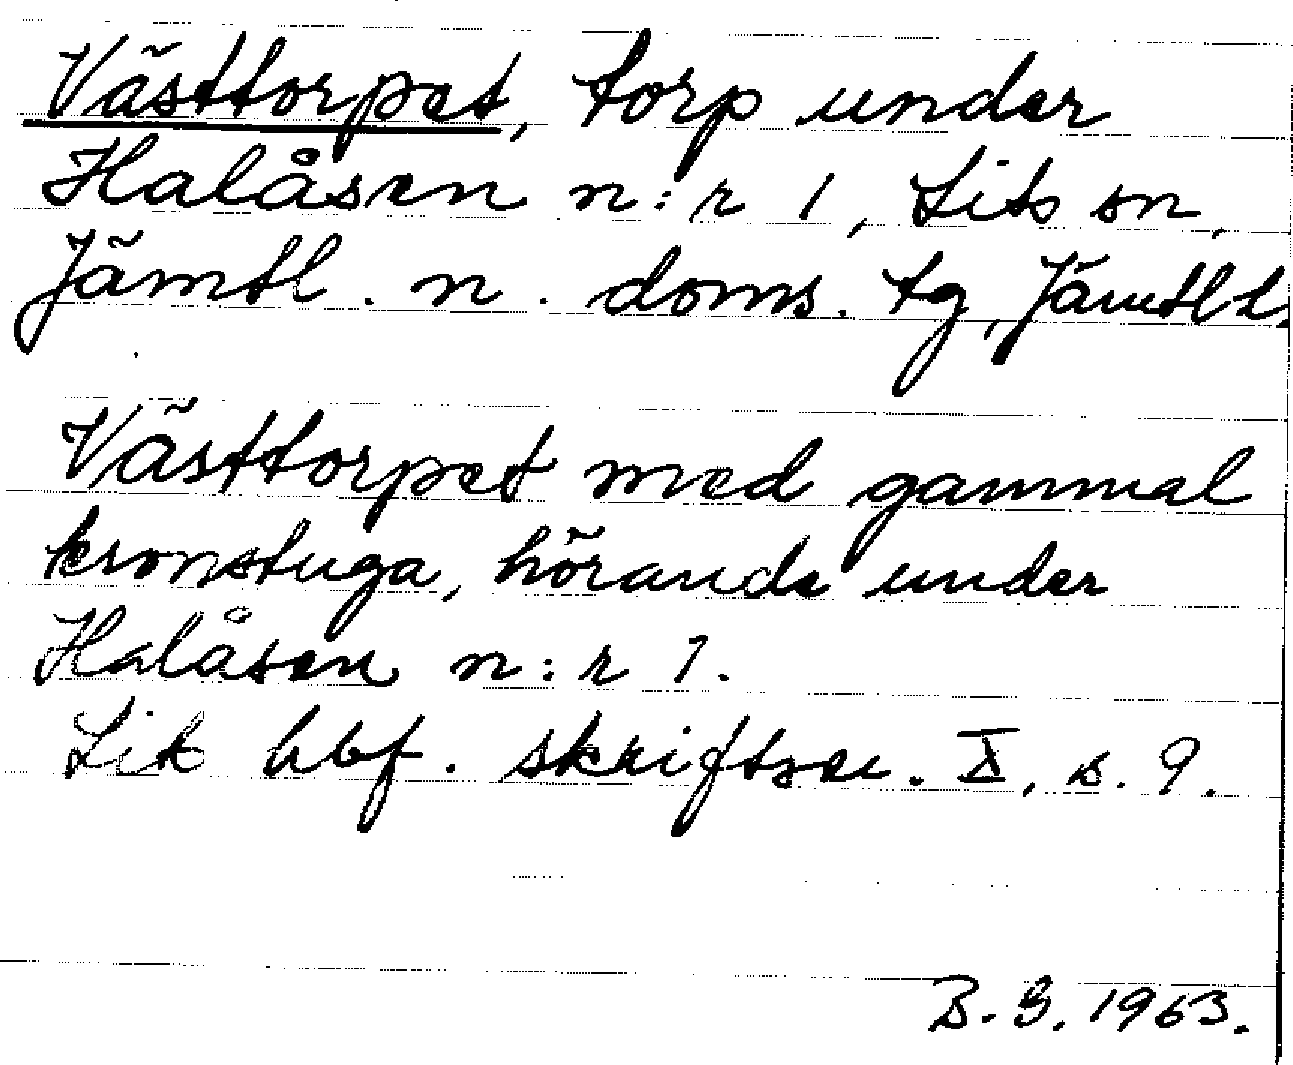 Västtorpet, torp under
Halåsen n:r 1, Lits sn,
Jämtl. n. doms. tg, Jämtl l.
Västtorpet med gammal
kronstuga, hörande under
Halåsen n:r 1.
Lit hbf. skriftser. X, s. 9.
B. G. 1963.